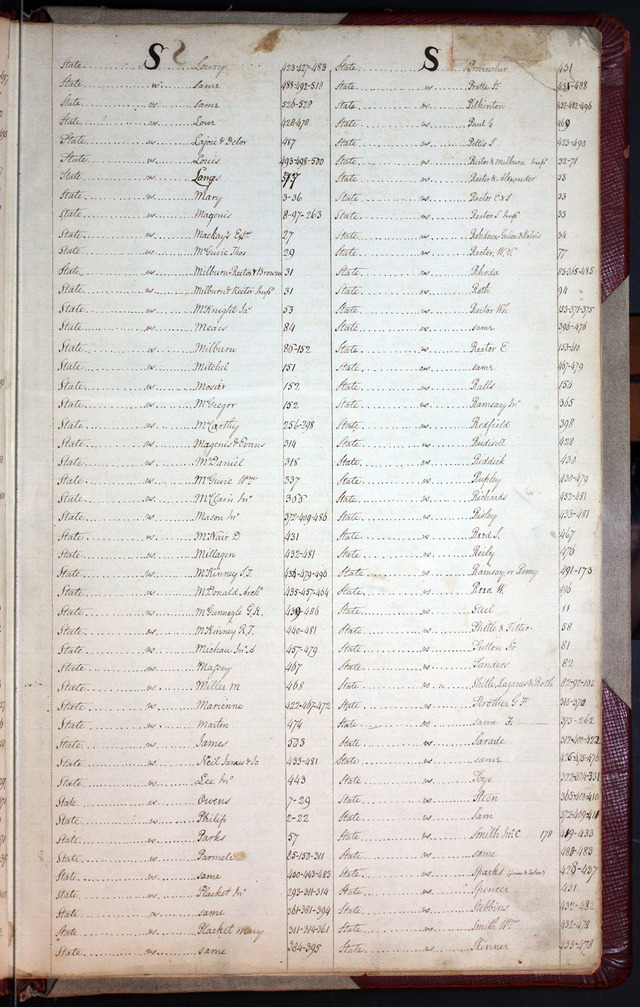 S
State vs Lowry 423-427-483
State vs same 488-492-519
State vs same 526-529
State vs Lowr 428-478
State vs Lajoie & Delor 487
State vs Louis 493-498-500
State vs Long 517
State vs Mary 3-36
State vs Magenis 8-97-263
State vs Mackay's Exrs 27
State vs McGuire Thos 29
State vs Milburn Rector & Brown 31
State vs Milburn & Rector Impd 31
State vs McKnight Jno 53
State vs Mears 84
State vs Milburn 86-152
State vs Mitchel 151
State vs Mosier 152
State vs McGregor 152
State vs McCarthy 256-298
State vs Magenis & Evans 314
State vs McDaniel 318
State vs McGuire Wm 337
State vs McClain Jno 365
State vs Mason Jno 372-409-486
State vs McNair D 431
State vs Millagen 432-481
State vs McKinney S.T. 434-479-496
State vs McDonald Archd 435-457-464
State vs McGunnegle G.K. 439-486
State vs McKinney R.T. 440-481
State vs Michau Jno. 457-479
State vs Massey 467
State vs Miller M 468
State vs Marienne 422-467-472
State vs Martin 474
State vs James 503
State vs Neil James & Jo 433-481
State vs Lee Jno 443
State vs Owens 7-29
State vs Philip 2-22
State vs Parks 57
State vs Parmele 85-150-311
State vs same 400-443-483
State vs Placket Jno 293-311-314
State vs same 361-381-394
State vs Placket Mary 311-314-361
State vs same 384-395
S
State vs Provencher 431
State vs Pratte 431-488
State vs Pilkinton 432-482-496
State vs Paul G 460
State vs Potts S 423-490
State vs Rector & Milburn Impd 32-71
State vs Rector & Alexander 33
State vs Rector E & S 33
State vs Rector S Impd 33
State vs 34
State vs Rector, W.V. 77
State vs Rhoda 83-365-485
State vs Roth 94
State vs Rector Wh 153-371-375
State vs same 396-476
State vs Rector E 153-410
State vs same 467-479
State vs Ralls 154
State vs Ramsay Jno 365
State vs Redfield 398
State vs Rudisell 428
State vs Riddick 430
State vs Rupley 430-479
State vs Richards 432-481
State vs Risley 433-481
State vs Reed S. 467
State vs Reily 476
State vs Ramsay or Remy 491-173
State vs Rose W. 496
State vs Steel 11
State vs Shittle & Fitter 58
State vs Sutton 81
State vs Sanders 82
State vs Stille, Lazarus & Roth 82-92-102
State vs Strother G F 310-370
State vs same F 373-262
State vs Sarade 312-401-422
State vs same 426-475-476
State vs Soye 322-324-331
State vs Steen 365-404-410
State vs Sam 372-409-411
State vs Smith Wm C 178 419-433
State vs same 480-483
State vs Sparks 428-437
State vs Spencer 431
State vs Stebbins 432-482
State vs Smith Wm 432-478
State vs Skinner 433-478